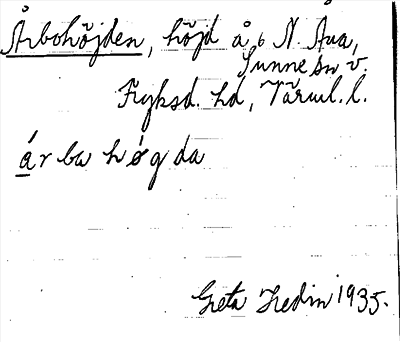 Årbohöjden, höjd å 6 N. Ava,
Sunne sn v.
Fryksd. hd, Värml. l.
árba hǿgda
Greta Hedin 1935.